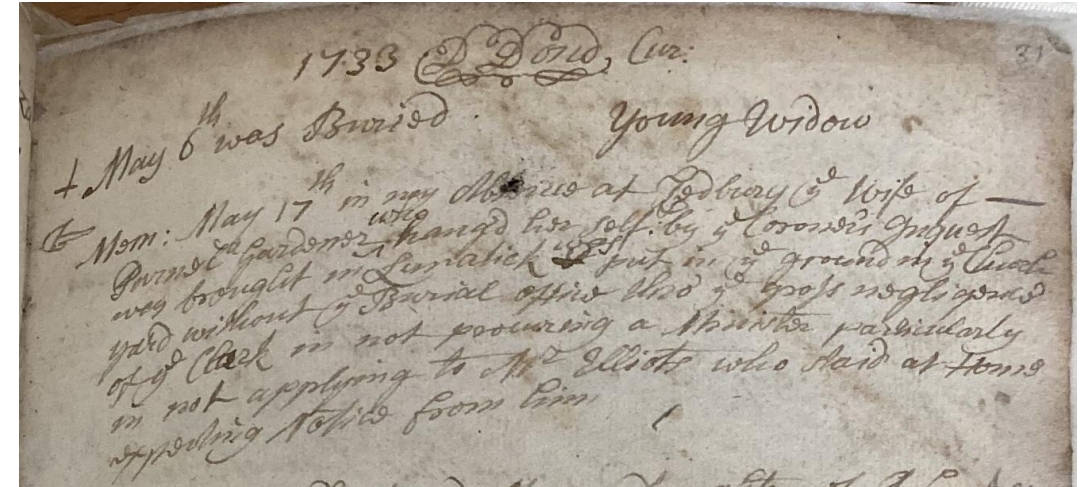 1733 D Dond, Cur: 31
+ May 6th was Buried Young Widow
Mem: May 17th in my Absence at Tedbury ye Wife of —
a Gardener, who hang'd her self. by ye Coroner's Inquest
was brought in Lunatick was put in ye ground in ye Church
yard without ye Burial office thro ye gross negligence
of ye Clark in not procuring a Minister particularly
in not applying to Mr Elliots who staid at Home
expecting Notice from him